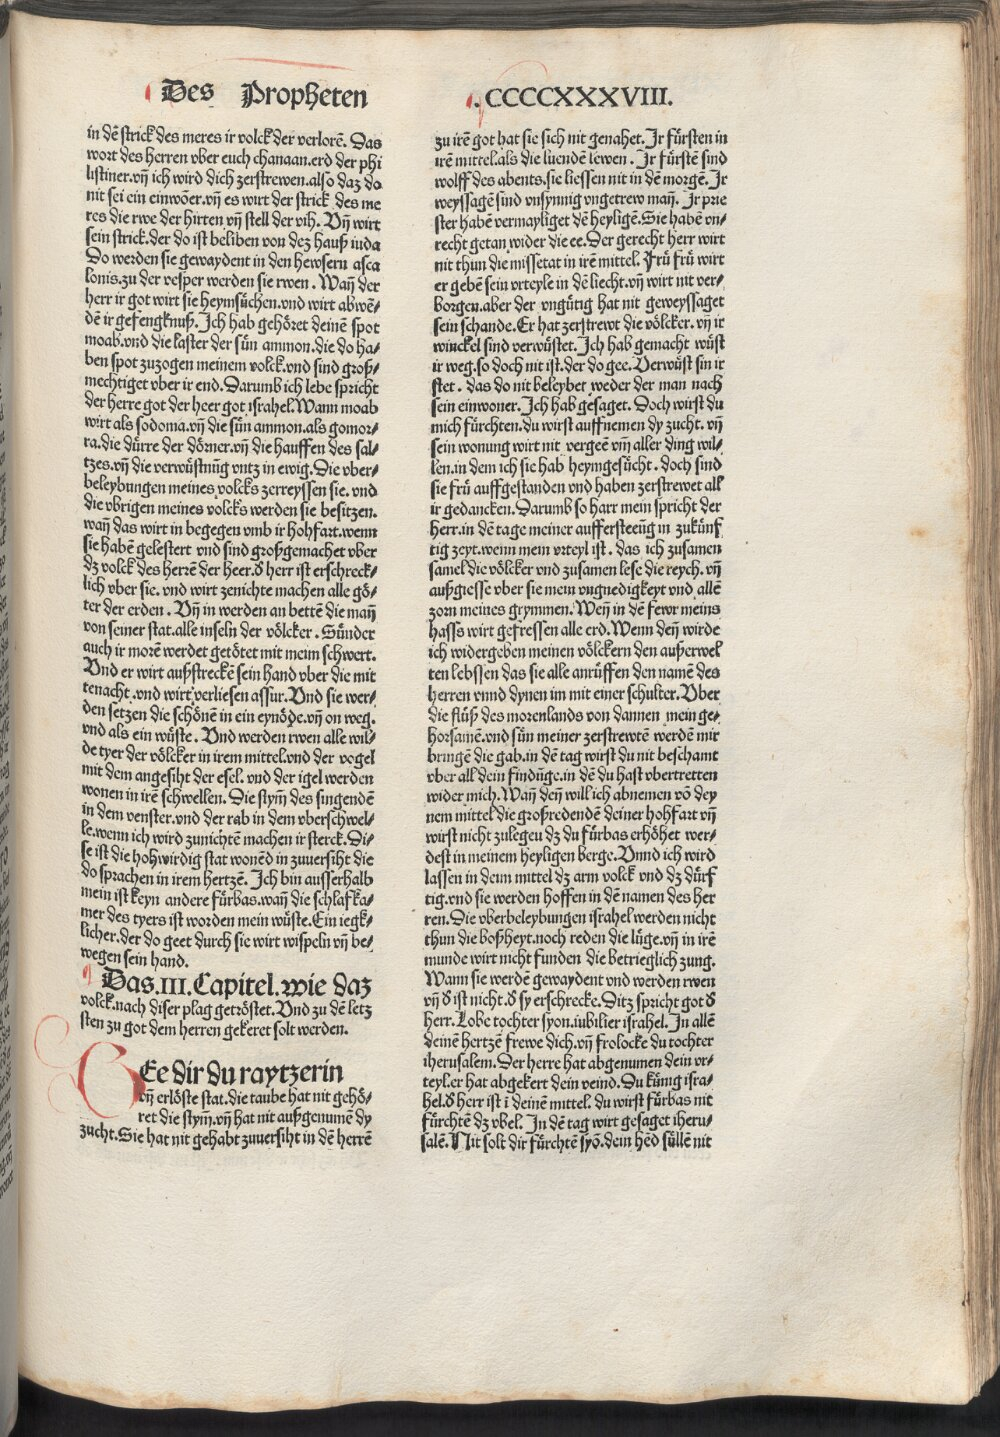 Des Propheten
.CCCCXXXVIII.
in dē strick des meres ir volck der verlorē. Das
wort des herren vber euch chanaan.erd der phi
listiner.vñ ich wird dich zerstrewen.also daz do
nit sei ein einwōer.vñ es wirt der strick des me
res die rwe der hirten vñ stell der vih. Vñ wirt
sein strick.der do ist beliben von dez hauß iuda
Do werden sie gewaydent in den hewsern asca
lonis.zu der vesper werden sie rwen. Wañ der
herr ir got wirt sie heymsůchen.vnd wirt abwē-
dē ir gefengknuß. Ich hab gehöret deinē spot
moab.vnd die laster der sün ammon.die do ha-
ben spot zuzogen meinem volck.vnd sind groß-
mechtiget vber ir end. Darumb ich lebe spricht
der herre got der heer got israhel.Wann moab
wirt als sodoma.vñ die sün ammon.als gomor-
ra.die dürre der dörner.vñ die hauffen des sal-
tzes.vñ die verwüstnūg vntz in ewig.Die vber-
beleybungen meines volcks zerreyssen sie. vnd
die vbrigen meines volcks werden sie besitzen.
wañ das wirt in begegen vmb ir hohfart.wenn
sie habē gelestert vnd sind großgemachet vber
dz volck des herrē der heer.d̓ herr ist erschreck-
lich vber sie. vnd wirt zenichte machen alle gö-
ter der erden. Vñ in werden an bettē die mañ
von seiner stat.alle inseln der völcker. Sünder
auch ir morē werdet getötet mit meim schwert.
Vnd er wirt außstreckē sein hand vber die mit
tenacht.vnd wirt verliesen assur.Vnd sie wer-
den setzen die schönē in ein eynöde.vñ on weg.
vnd als ein wüste. Vnd werden rwen alle wil-
de tyer der völcker in irem mittel.vnd der vogel
mit dem angesiht der esel. vnd der igel werden
wonen in irē schwellen. Die stym̄ des singendē
in dem venster.vnd der rab in dem vberschwel-
le.wenn ich wird zunichtē machen ir sterck.Di-
se ist die hohwirdig stat wonēd in zuuersiht die
do sprachen in irem hertzē. Ich bin ausserhalb
mein ist keyn andere fürbas.wañ die schlafka-
mer des tyers ist worden mein wüste.Ein iegk-
licher.der do geet durch sie wirt wispeln vñ be-
wegen sein hand.
Das.III.Capitel.wie daz
volck.nach diser plag getröstet.Vnd zu dē letz
sten zu got dem herren gekeret solt werden.
GEe dir du raytzerin
vñ erlöste stat.die taube hat nit gehö-
ret die stym̄.vñ hat nit außgenumē dy
zucht.Sie hat nit gehabt zuuersiht in dē herrē
zu irē got hat sie sich nit genahet. Ir fürsten in
irē mittel.als die luendē lewen. Ir fürstē sind
wolff des abents.sie liessen nit in dē morgē. Ir
weyssagē sind vnsynnig vngetrew mañ. Ir prie
ster habē vermayliget dē heyligē.Sie habē vn-
recht getan wider die ee.Der gerecht herr wirt
nit thun die missetat in irē mittel. Frů frů wirt
er gebē sein vrteyle in dē liecht.vñ wirt nit ver-
borgen.aber der vngütig hat nit geweyssaget
sein schande.Er hat zerstrewt die völcker.vñ ir
winckel sind verwüstet.Ich hab gemacht wüst
ir weg.so doch nit ist.der do gee.Verwüst sin ir
stet. das do nit beleybet weder der man nach
sein einwoner.Ich hab gesaget. Doch wirst du
mich fürchten.du wirst auffnemen dy zucht. vñ
sein wonung wirt nit vergeē vñ aller ding wil-
len.in dem ich sie hab heymgesůcht. doch sind
sie frů auffgestanden vnd haben zerstrewet all
ir gedancken.Darumb so harr mein spricht der
herr.in dē tage meiner aufferstēēūg in zukünf
tig zeyt.wenn mein vrteyl ist. das ich zusamen
samel die völcker vnd zusamen lese die reych.vñ
außgiesse vber sie mein vngnedigkeyt vnd allē
zorn meines grymmen.Weñ in dē fewr meins
hasss wirt gefressen alle erd.Wenn deñ wirde
ich widergeben meinen völckern den außerwel
ten lebssen das sie alle anrüffen den namē des
herren vnnd dynen im mit einer schulter.Vber
die flüß des morenlands von dannen mein ge-
horsamē.vnd sün meiner zerstrewtē werdē mir
bringē die gab.in dē tag wirst du nit beschamt
vber all dein findūge.in dē du hast vbertretten
wider mich.Wañ deñ will ich abnemen vō dey
nem mittel die großredendē deiner hohfart vñ
wirst nicht zulegeu dz du fürbas erhöhet wer-
dest in meinem heyligen berge.Vnnd ich wird
lassen in deim mittel dz arm volck vnd dz dürf
tig.vnd sie werden hoffen in dē namen des her
ren.Die vberbeleybungen israhel werden nicht
thun die boßheyt.noch reden die lüge.vñ in irē
munde wirt nicht funden die betrieglich zung.
Wann sie werdē gewaydent vnd werden rwen
vñ d̓ ist nicht.d̓ sy erschrecke.Ditz spricht got d̓
herr.Lobe tochter syon.iubilier israhel.In allē
deinē hertzē frewe dich.vñ frolocke du tochter
iherusalem.Der herre hat abgenumen dein vr-
teyl.er hat abgekert dein veind.Du künig isra-
hel.d̓ herr ist ī deinē mittel.du wirst fürbas nit
fürchtē dz vbel. In dē tag wirt gesaget iheru-
salē.Nit solt dir fürchtē syō.dein hēd süllē nit